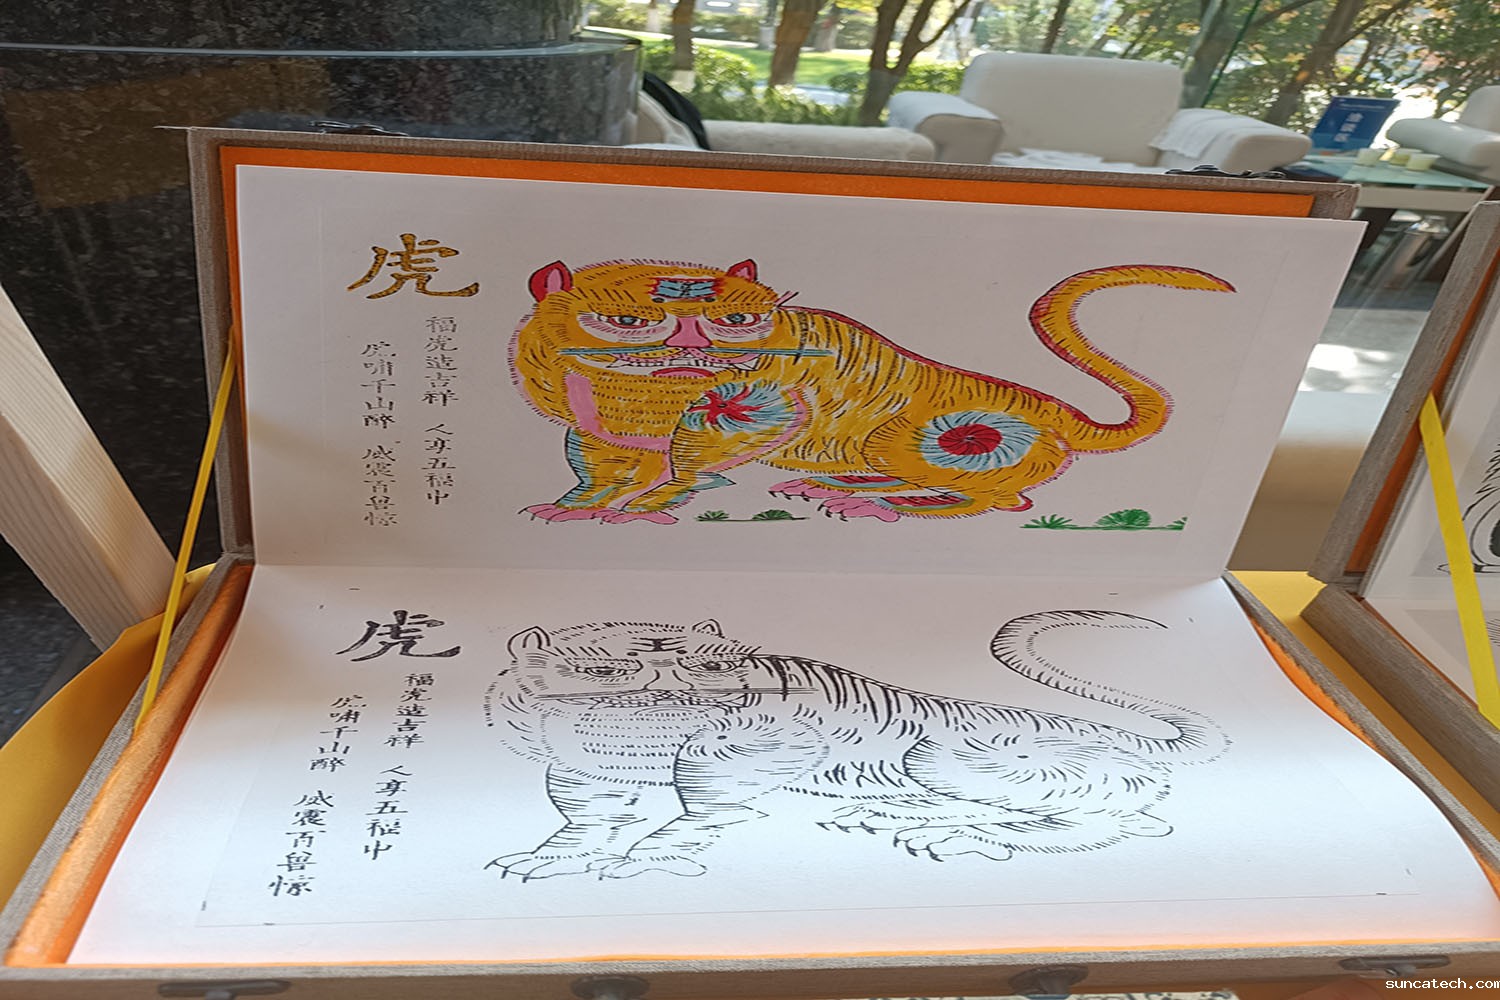 虎
福虎造吉祥 人享五福中
虎嘯千山醉 威震百兽惊
王
虎
福虎造吉祥 人享五福中
虎嘯千山醉 威震百兽惊
王
suncatech.com